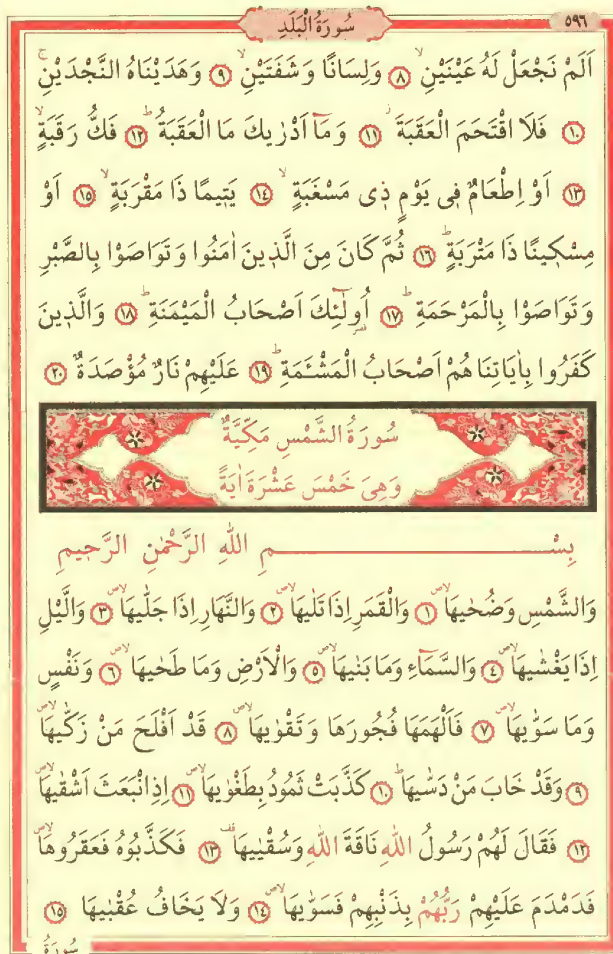 ٥٩٦
سُورَةُ الْبَلَدِ
اَلَمْ نَجْعَلْ لَهُ عَيْنَيْنِۙ ﴿٨﴾ وَلِسَانًا وَشَفَتَيْنِۙ ﴿٩﴾ وَهَدَيْنَاهُ النَّجْدَيْنِۚ
﴿١٠﴾ فَلَا اقْتَحَمَ الْعَقَبَةَۘ ﴿١١﴾ وَمَٓا اَدْرٰيكَ مَا الْعَقَبَةُۜ ﴿١٢﴾ فَكُّ رَقَبَةٍۙ
﴿١٣﴾ اَوْ اِطْعَامٌ فٖي يَوْمٍ ذٖي مَسْغَبَةٍۙ ﴿١٤﴾ يَتٖيمًا ذَا مَقْرَبَةٍۙ ﴿١٥﴾ اَوْ
مِسْكٖينًا ذَا مَتْرَبَةٍۜ ﴿١٦﴾ ثُمَّ كَانَ مِنَ الَّذٖينَ اٰمَنُوا وَتَوَاصَوْا بِالصَّبْرِ
وَتَوَاصَوْا بِالْمَرْحَمَةِۜ ﴿١٧﴾ اُولٰٓئِكَ اَصْحَابُ الْمَيْمَنَةِۜ ﴿١٨﴾ وَالَّذٖينَ
كَفَرُوا بِاٰيَاتِنَا هُمْ اَصْحَابُ الْمَشْـَٔمَةِۜ ﴿١٩﴾ عَلَيْهِمْ نَارٌ مُؤْصَدَةٌ ﴿٢٠﴾
سُورَةُ الشَّمْسِ مَكِّيَّةٌ
وَهِيَ خَمْسَ عَشْرَةَ اٰيَةً
بِسْمِ اللّٰهِ الرَّحْمٰنِ الرَّحٖيمِ
وَالشَّمْسِ وَضُحٰيهَاۙ ﴿١﴾ وَالْقَمَرِ اِذَا تَلٰيهَاۙ ﴿٢﴾ وَالنَّهَارِ اِذَا جَلّٰيهَاۙ ﴿٣﴾ وَالَّيْلِ
اِذَا يَغْشٰيهَاۙ ﴿٤﴾ وَالسَّمَٓاءِ وَمَا بَنٰيهَاۙ ﴿٥﴾ وَالْاَرْضِ وَمَا طَحٰيهَاۙ ﴿٦﴾ وَنَفْسٍ
وَمَا سَوّٰيهَاۙ ﴿٧﴾ فَاَلْهَمَهَا فُجُورَهَا وَتَقْوٰيهَاۙ ﴿٨﴾ قَدْ اَفْلَحَ مَنْ زَكّٰيهَاۙ
﴿٩﴾ وَقَدْ خَابَ مَنْ دَسّٰيهَاۜ ﴿١٠﴾ كَذَّبَتْ ثَمُودُ بِطَغْوٰيهَاۙ ﴿١١﴾ اِذِ انْبَعَثَ اَشْقٰيهَاۙ
﴿١٢﴾ فَقَالَ لَهُمْ رَسُولُ اللّٰهِ نَاقَةَ اللّٰهِ وَسُقْيٰيهَاۜ ﴿١٣﴾ فَكَذَّبُوهُ فَعَقَرُوهَاۙ
فَدَمْدَمَ عَلَيْهِمْ رَبُّهُمْ بِذَنْبِهِمْ فَسَوّٰيهَاۙ ﴿١٤﴾ وَلَا يَخَافُ عُقْبٰيهَا ﴿١٥﴾
سُورَةُ